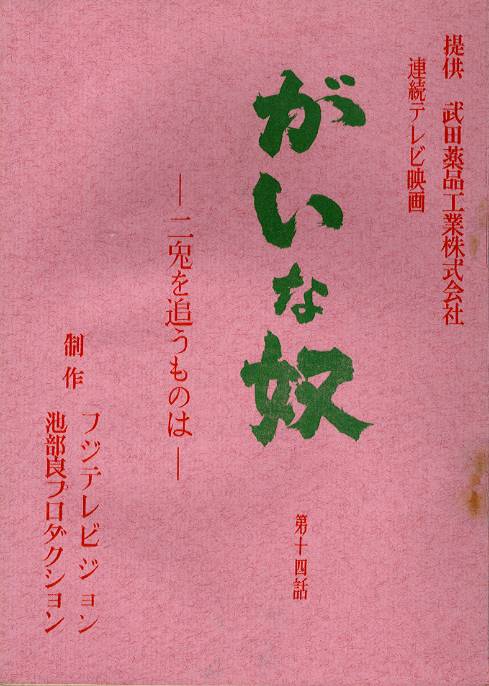 提供　武田薬品工業株式会社
連続テレビ映画
がいな奴
第十四話
―二兎を追うものは―
制作
フジテレビジョン
池部良プロダクション